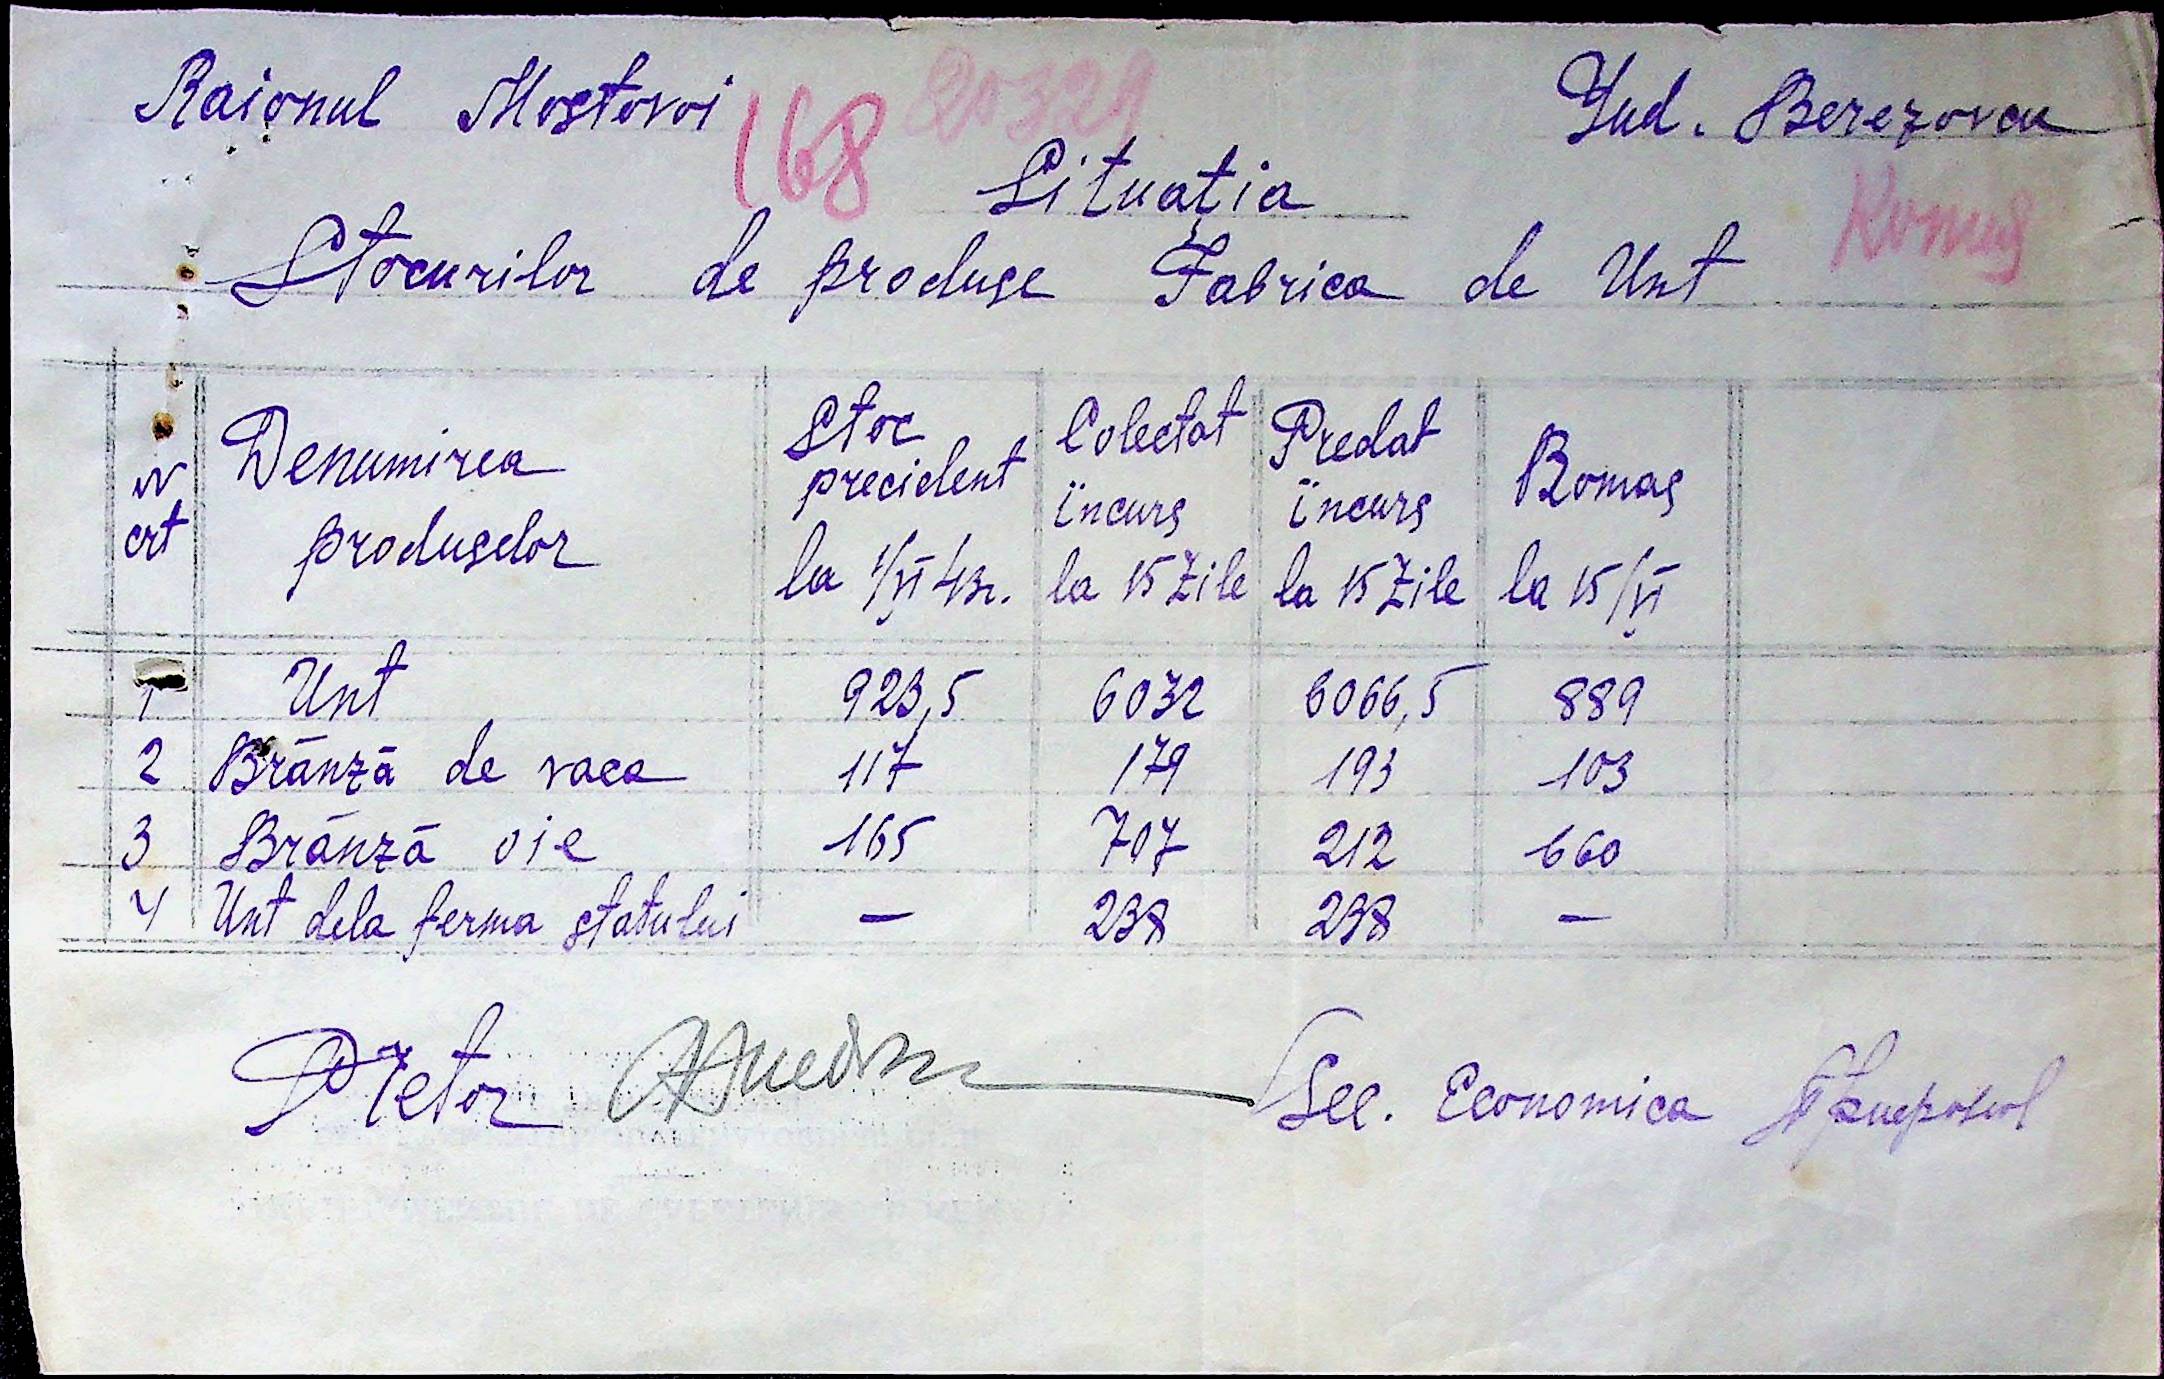 Raionul Mostovoi Jud. Berezovca
168 20329
Situația
Romaș
Stocurilor de produse Fabrica de Unt
N crt Denumirea produselor Stoc precident la 1/VI 43 Colectat incurs la 15 Zile Predat incurs la 15 Zile Romas la 15/VI
1 Unt 923,5 6032 6066,5 889
2 Brănză de vaca 117 179 193 103
3 Brănză oie 165 707 212 660
4 Unt dela ferma statului — 238 238 —
Sec. Economica